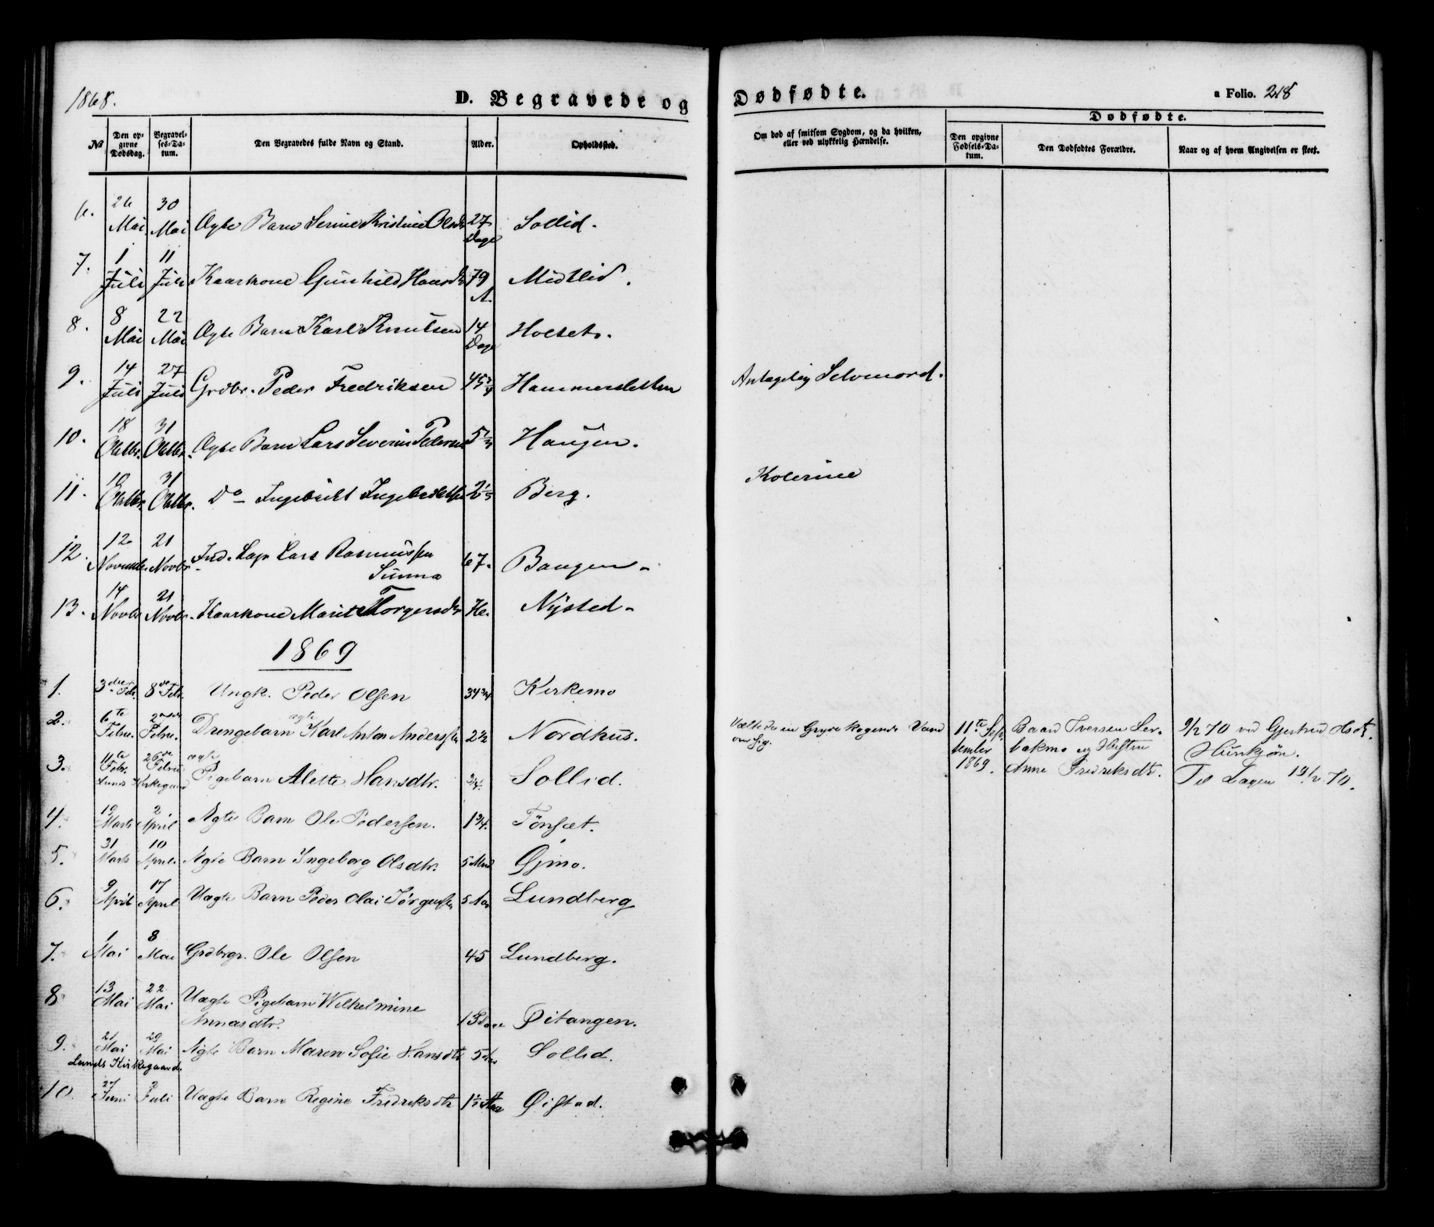 1868.
D. Begravede og
Dødfødte.
a Folio. 218
No
Den opgivne Dødsdag.
Begravelses-Datum.
Den Begravedes fulde Navn og Stand.
Alder.
Opholdssted.
Om død af smitsom Sygdom, og da hvilken, eller ved ulykkelig Hændelse.
Dødfødte.
Den opgivne Fødsels-Datum.
Den Dødfødtes Forældre.
Naar og af hvem Angivelsen er skeet.
6. 26 Mai 30 Mai Ægte Barn Serine Kristine Olsdr 27 Dage Sollid.
7. 1 Juli 11 Juli Kaarkone Gunhild Hansdr 79 A. Midtlid.
8. 8 Mai 22 Mai Ægte Barn Karl Knutsen 14 Dage Holset.
9. 14 Juli 27 Juli Grdbr. Peder Fredriksen 45 Hammersletten Antagelig Selvmord.
10. 18 Oktbr. 31 Oktbr. Ægte Barn Lars Severin Pedersen 5 Haugen.
11. 10 Oktbr. 31 Oktbr. Do Ingebrikt Ingebriktsen 2 Berg. Kolerine
12. 12 Novembr. 21 Novbr. Ind. Lap Lars Rasmussen Sunna 67. Baugen
13. 14 Novbr. 21 Novbr. Kaarkone Marit Torgersdr 76. Nysted
1869
1. 3die Febr. 8de Febr. Ungk. Peder Olsen 34 3/4 Kirkemo
2. 6te Febru. Febru. Drengebarn ægte Karl Anton Anderssen 2 1/2 Nordhus. Væltede en Gryde kogende Vand over sig. 11te September 1869. Baard Iversen Hustru Anne Fredriksdtr. 9/2 70 ved Gjertrud
3. 11te Febr. Febru. ægte Pigebarn Aletta Hansdtr. 3/4. Sollid. Til Dagen 13/2 70.
Lunds Kirkegaard
4. 19 Marts 2. April Ægte Barn Ole Pedersen. 1 3/4. Tønset.
5. 31 Marts 10 April Ægte Barn Ingeborg Olsdtr. 5 Mnd Øjmo.
6. 9 April 17 April Uægte Barn Peder Olai Jørgensen 5 Aar Lundberg
7. 1 Mai 8 Mai Grdbrgr. Ole Olsen 45 Lundberg.
8. 13 Mai 22 Mai Uægte Pigebarn Wilhelmine Annasdtr. 13 Dage Øitangen.
9. 21 Mai 29 Mai Ægte Barn Maren Sofie Hansdtr 5 Sollid.
Lunds Kirkegaard.
10. 27 Juni Juli Uægte Barn Regine Fredriksdtr 1 1/2 Aar Øistad.